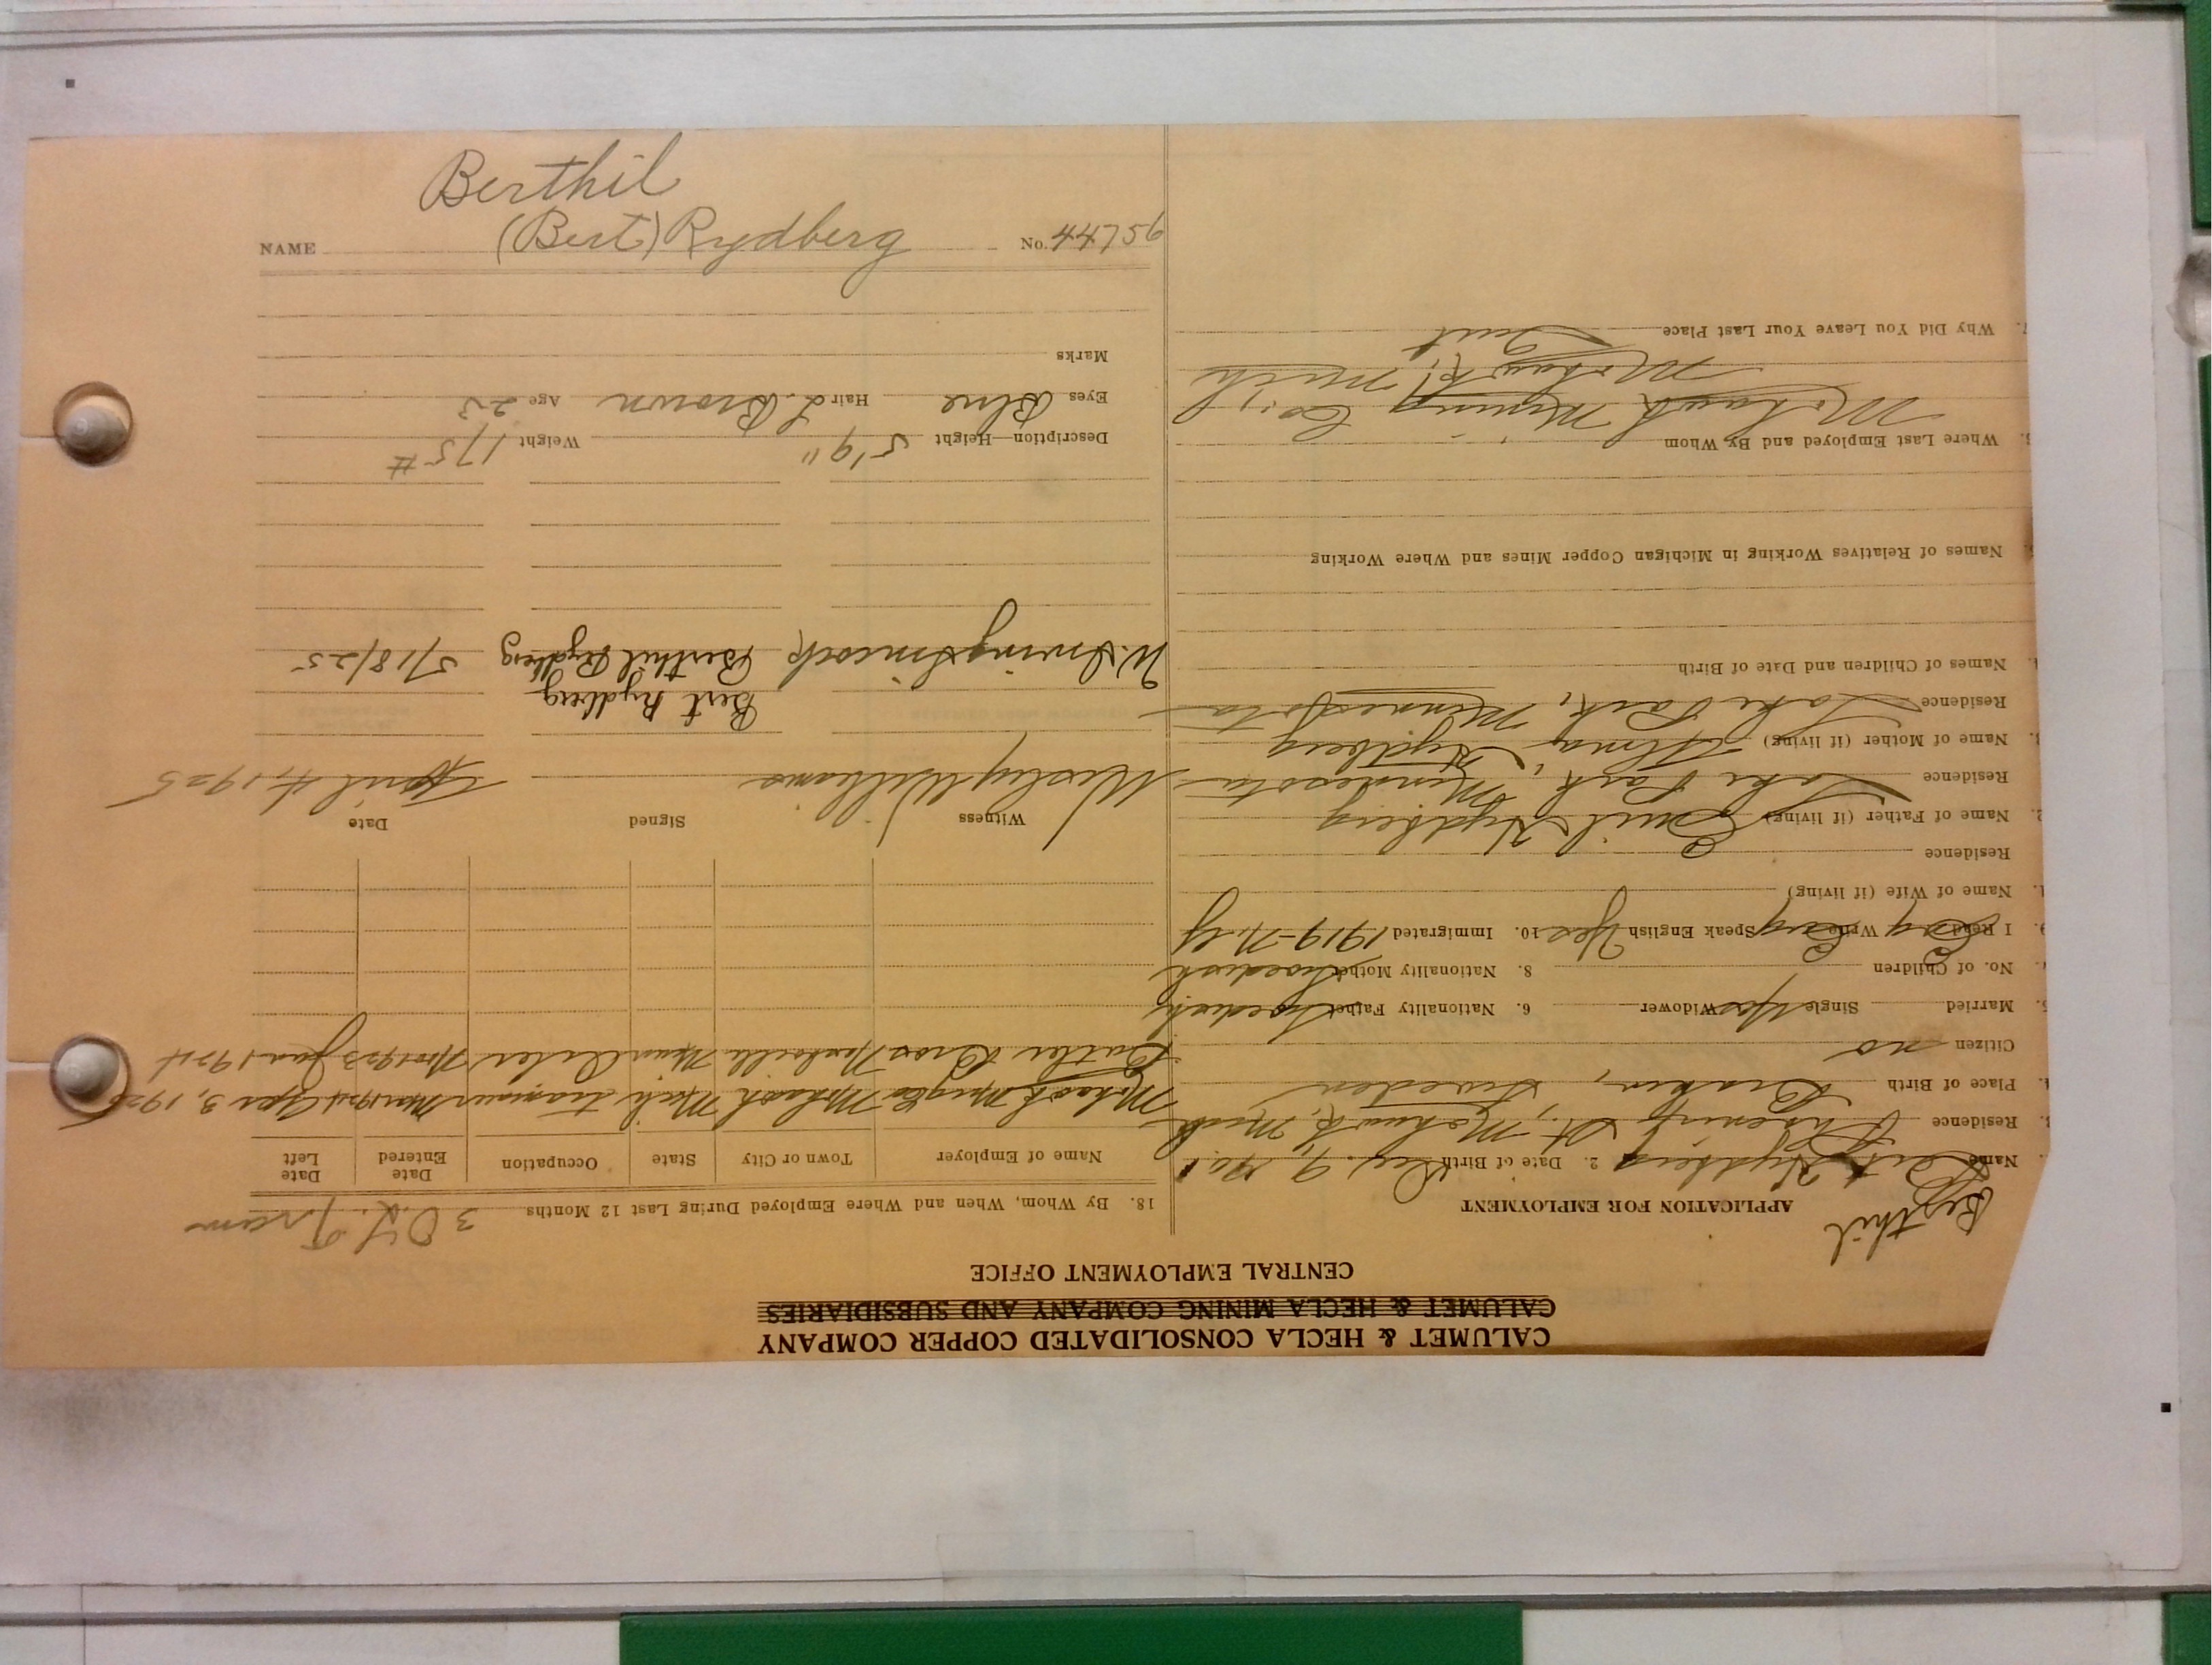 Berthil
NAME (Bert) Rydberg No. 44756
CALUMET & HECLA CONSOLIDATED COPPER COMPANY
CALUMET & HECLA MINING COMPANY AND SUBSIDIARIES
CENTRAL EMPLOYMENT OFFICE
APPLICATION FOR EMPLOYMENT
Berthil
Name Bert Rydberg 2. Date of Birth Dec. 9, 1901
3. Residence Phoenix St., Mohawk, Mich
4. Place of Birth Sweden
Citizen no
5. Married Single Yes Widower 6. Nationality Father Swedish
7. No. of Children 8. Nationality Mother Swedish
9. I Read Eng Write Eng Speak English Yes 10. Immigrated 1919-N.Y
1. Name of Wife (if living)
Residence
2. Name of Father (if living) Emil Rydberg
Residence Lake Park, Minnesota
3. Name of Mother (if living) Alma Rydberg
Residence Lake Park, Minnesota
4. Names of Children and Date of Birth
5. Names of Relatives Working in Michigan Copper Mines and Where Working
6. Where Last Employed and By Whom
Mohawk Mining Co.,
Mohawk, Mich
7. Why Did You Leave Your Last Place Quit
3 O.L. Tram
18. By Whom, When and Where Employed During Last 12 Months
Name of Employer Town or City State Occupation Date Entered Date Left
Mohawk Mining Co Mohawk Mich trammer Mar 1924 Apr 3, 1925
Butler Bros Minn Nov 1923 Jan 1924
Witness Signed Date
Wesley Williams April 4, 1925
Bert Rydberg
W. Irving Simcock Berthil Rydberg 5/18/25
Description—Height 5'9" Weight 175#
Eyes Blue Hair L. Brown Age 23
Marks